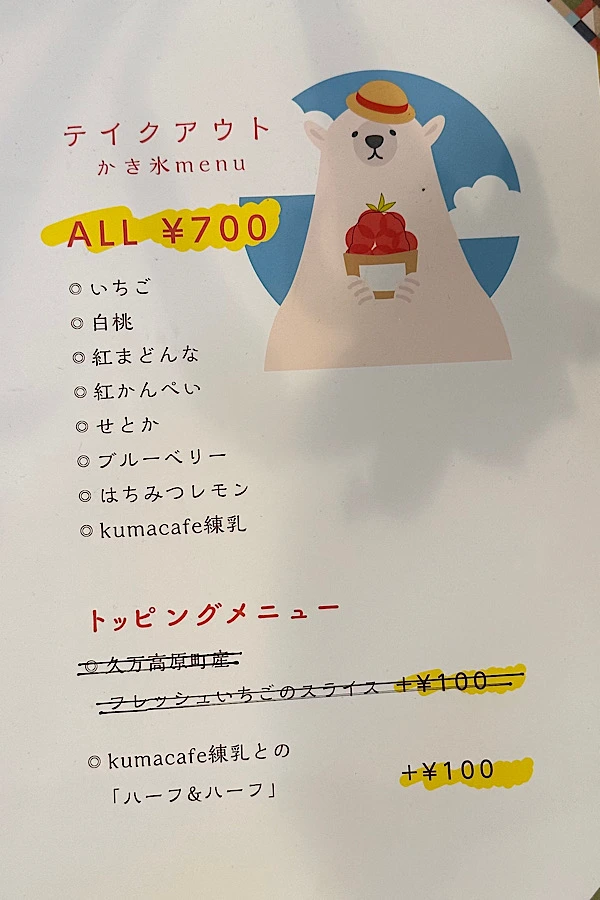 テイクアウト
かき氷menu
ALL ¥700
◎いちご
◎白桃
◎紅まどんな
◎紅かんぺい
◎せとか
◎ブルーベリー
◎はちみつレモン
◎kumacafe練乳
トッピングメニュー
◎久万高原町産
フレッシュいちごのスライス +¥100
◎kumacafe練乳との
「ハーフ&ハーフ」 +¥100